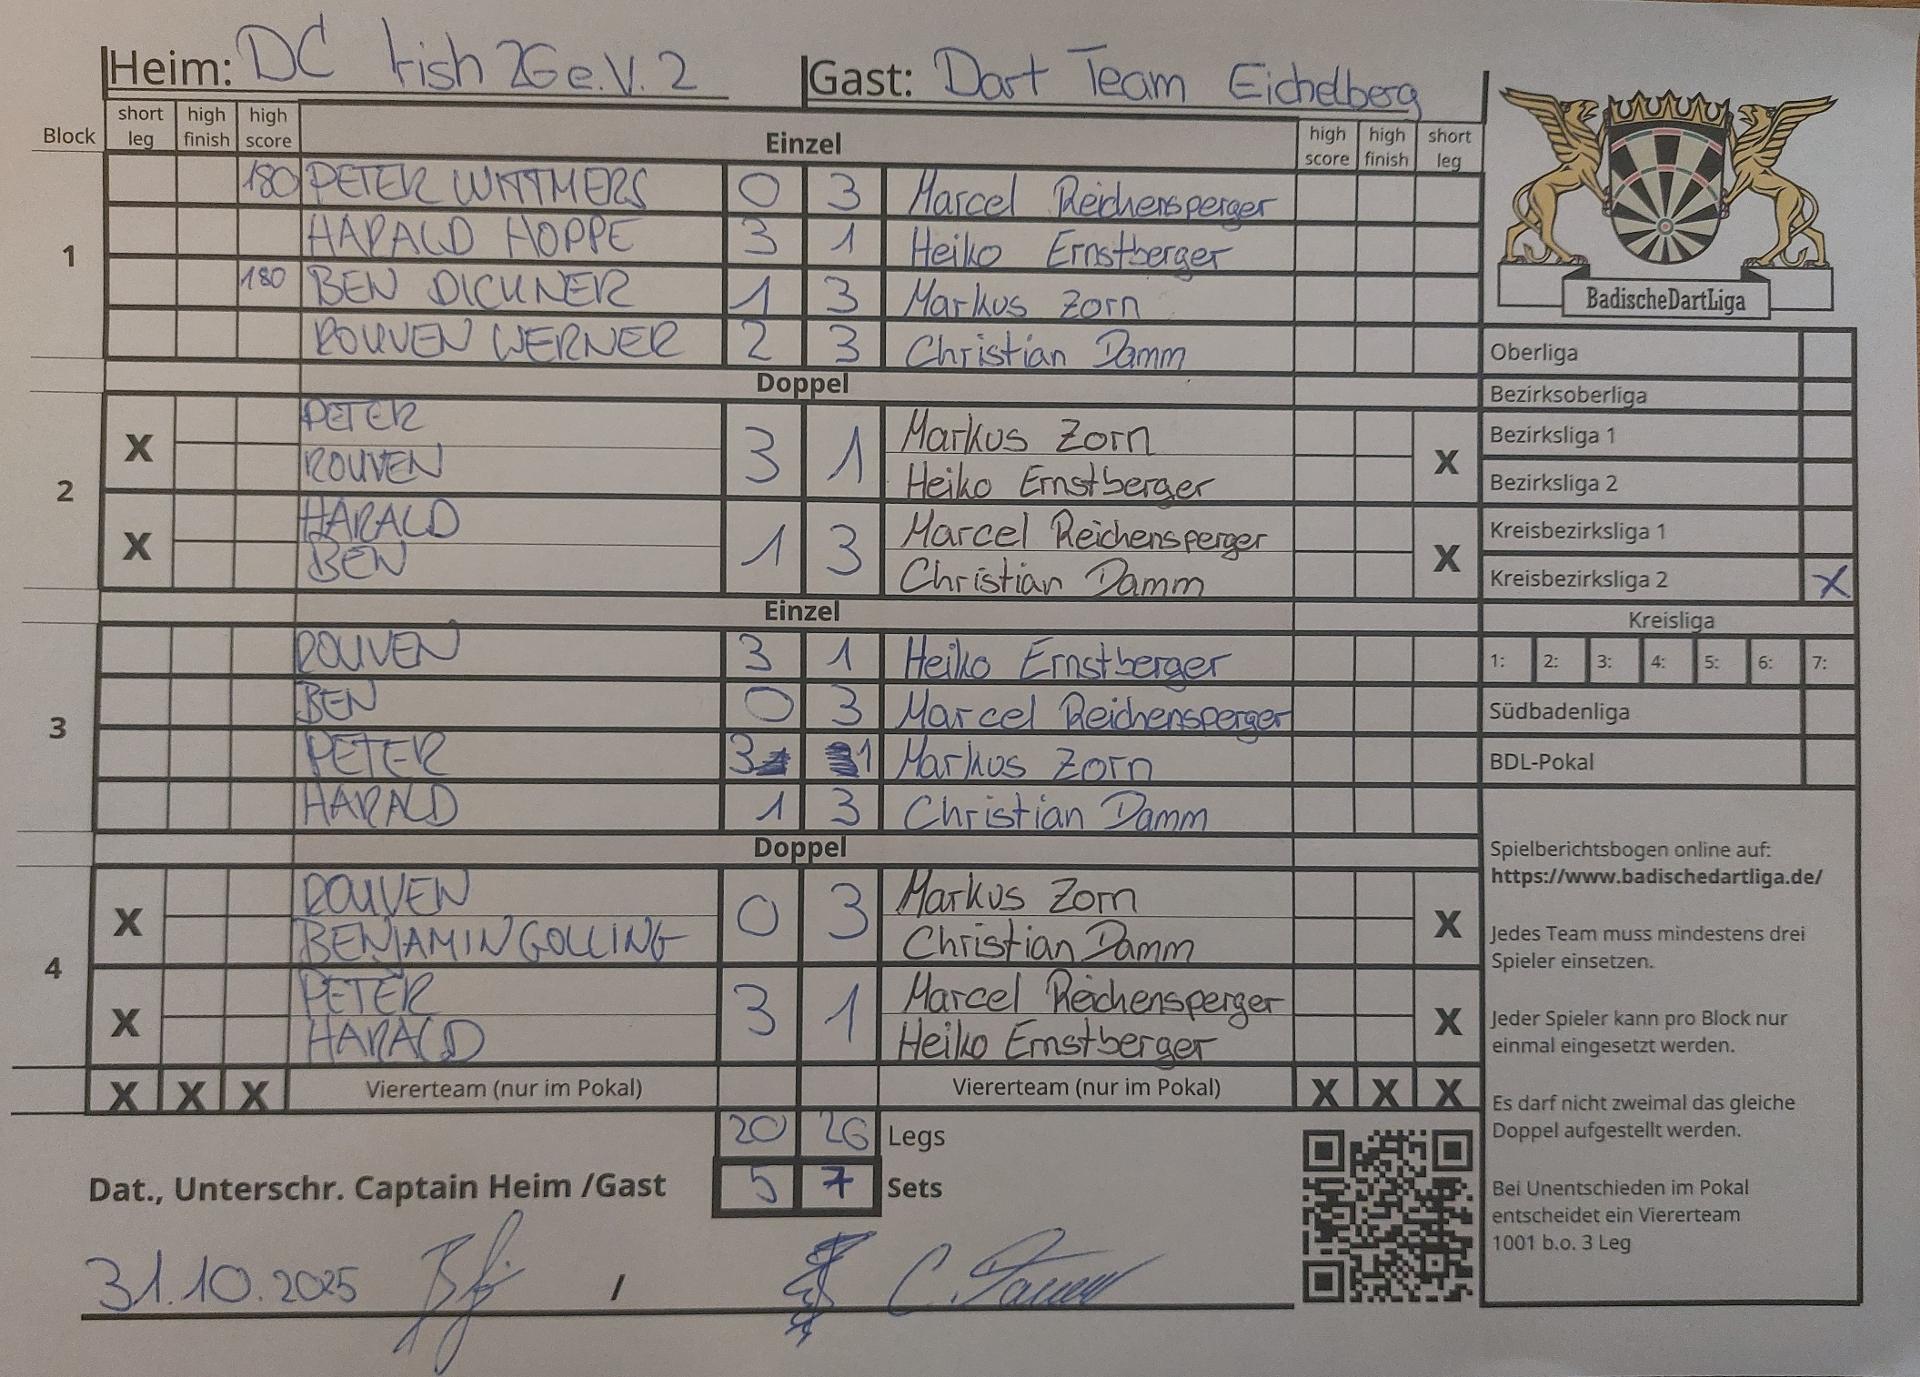 Heim: DC Irish 26 e.V. 2 Gast: Dart Team Eichelberg
Block short leg high finish high score Einzel high score high finish short leg
1
180 PETER WITTMERS 0 3 Marcel Reichensperger
HARALD HOPPE 3 1 Heiko Ernstberger
180 BEN DICKNER 1 3 Markus Zorn
ROUVEN WERNER 2 3 Christian Damm
Doppel
2
X PETER 3 1 Markus Zorn X
ROUVEN Heiko Ernstberger
X HARALD 1 3 Marcel Reichensperger X
BEN Christian Damm
Einzel
3
ROUVEN 3 1 Heiko Ernstberger
BEN 0 3 Marcel Reichensperger
PETER 3 1 Markus Zorn
HARALD 1 3 Christian Damm
Doppel
4
X ROUVEN 0 3 Markus Zorn X
BENJAMIN GOLLING Christian Damm
X PETER 3 1 Marcel Reichensperger X
HARALD Heiko Ernstberger
X X X Vierterteam (nur im Pokal) Viererteam (nur im Pokal) X X X
20 26 Legs
Dat., Unterschr. Captain Heim /Gast 5 7 Sets
31.10.2025 /
BadischeDartLiga
Oberliga
Bezirksoberliga
Bezirksliga 1
Bezirksliga 2
Kreisbezirksliga 1
Kreisbezirksliga 2 X
Kreisliga
1: 2: 3: 4: 5: 6: 7:
Südbadenliga
BDL-Pokal
Spielberichtsbogen online auf:
https://www.badischedartliga.de/
Jedes Team muss mindestens drei
Spieler einsetzen.
Jeder Spieler kann pro Block nur
einmal eingesetzt werden.
Es darf nicht zweimal das gleiche
Doppel aufgestellt werden.
Bei Unentschieden im Pokal
entscheidet ein Viererteam
1001 b.o. 3 Leg